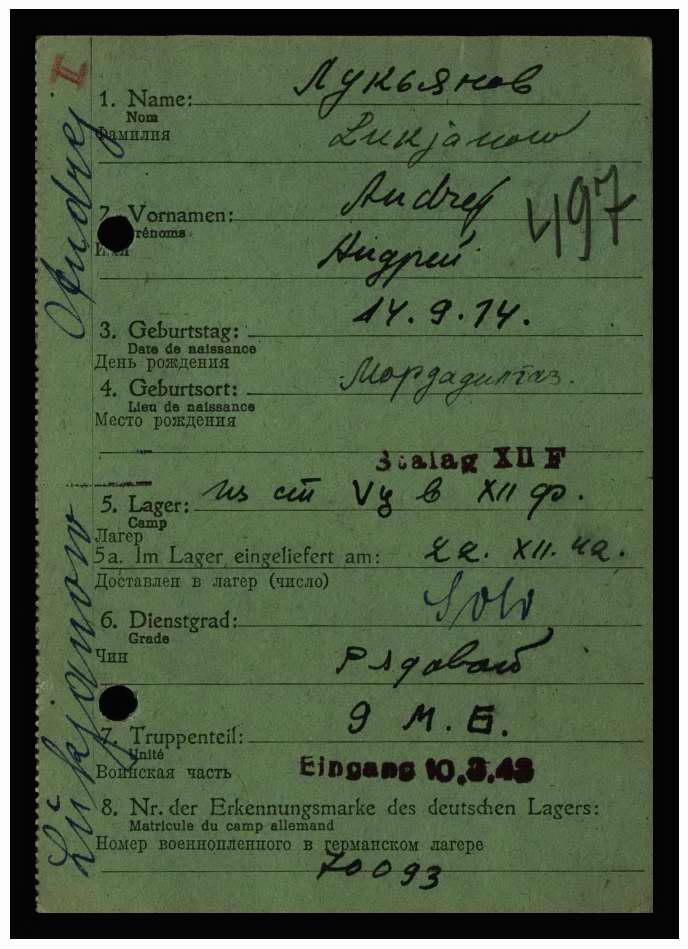 II
Andrej
Lukjanow
1. Name: Лукьянов
Nom
Фамилия Lukjanow
2. Vornamen: Andrej
Prénoms
Имя Андрей
497
3. Geburtstag: 14.9.14.
Date de naissance
День рождения
4. Geburtsort:
Lieu de naissance
Место рождения
Stalag XII F
5. Lager: из ст Vц в XII ф.
Camp
Лагер
5a. Im Lager eingeliefert am: XII.
Доставлен в лагер (число)
6. Dienstgrad: Sold
Grade
Чин Рядовой
7. Truppenteil: 9 М.Б.
Unité
Воинская часть Eingang 10.3.43
8. Nr. der Erkennungsmarke des deutschen Lagers:
Matricule du camp allemand
Номер военнопленного в германском лагере
70093